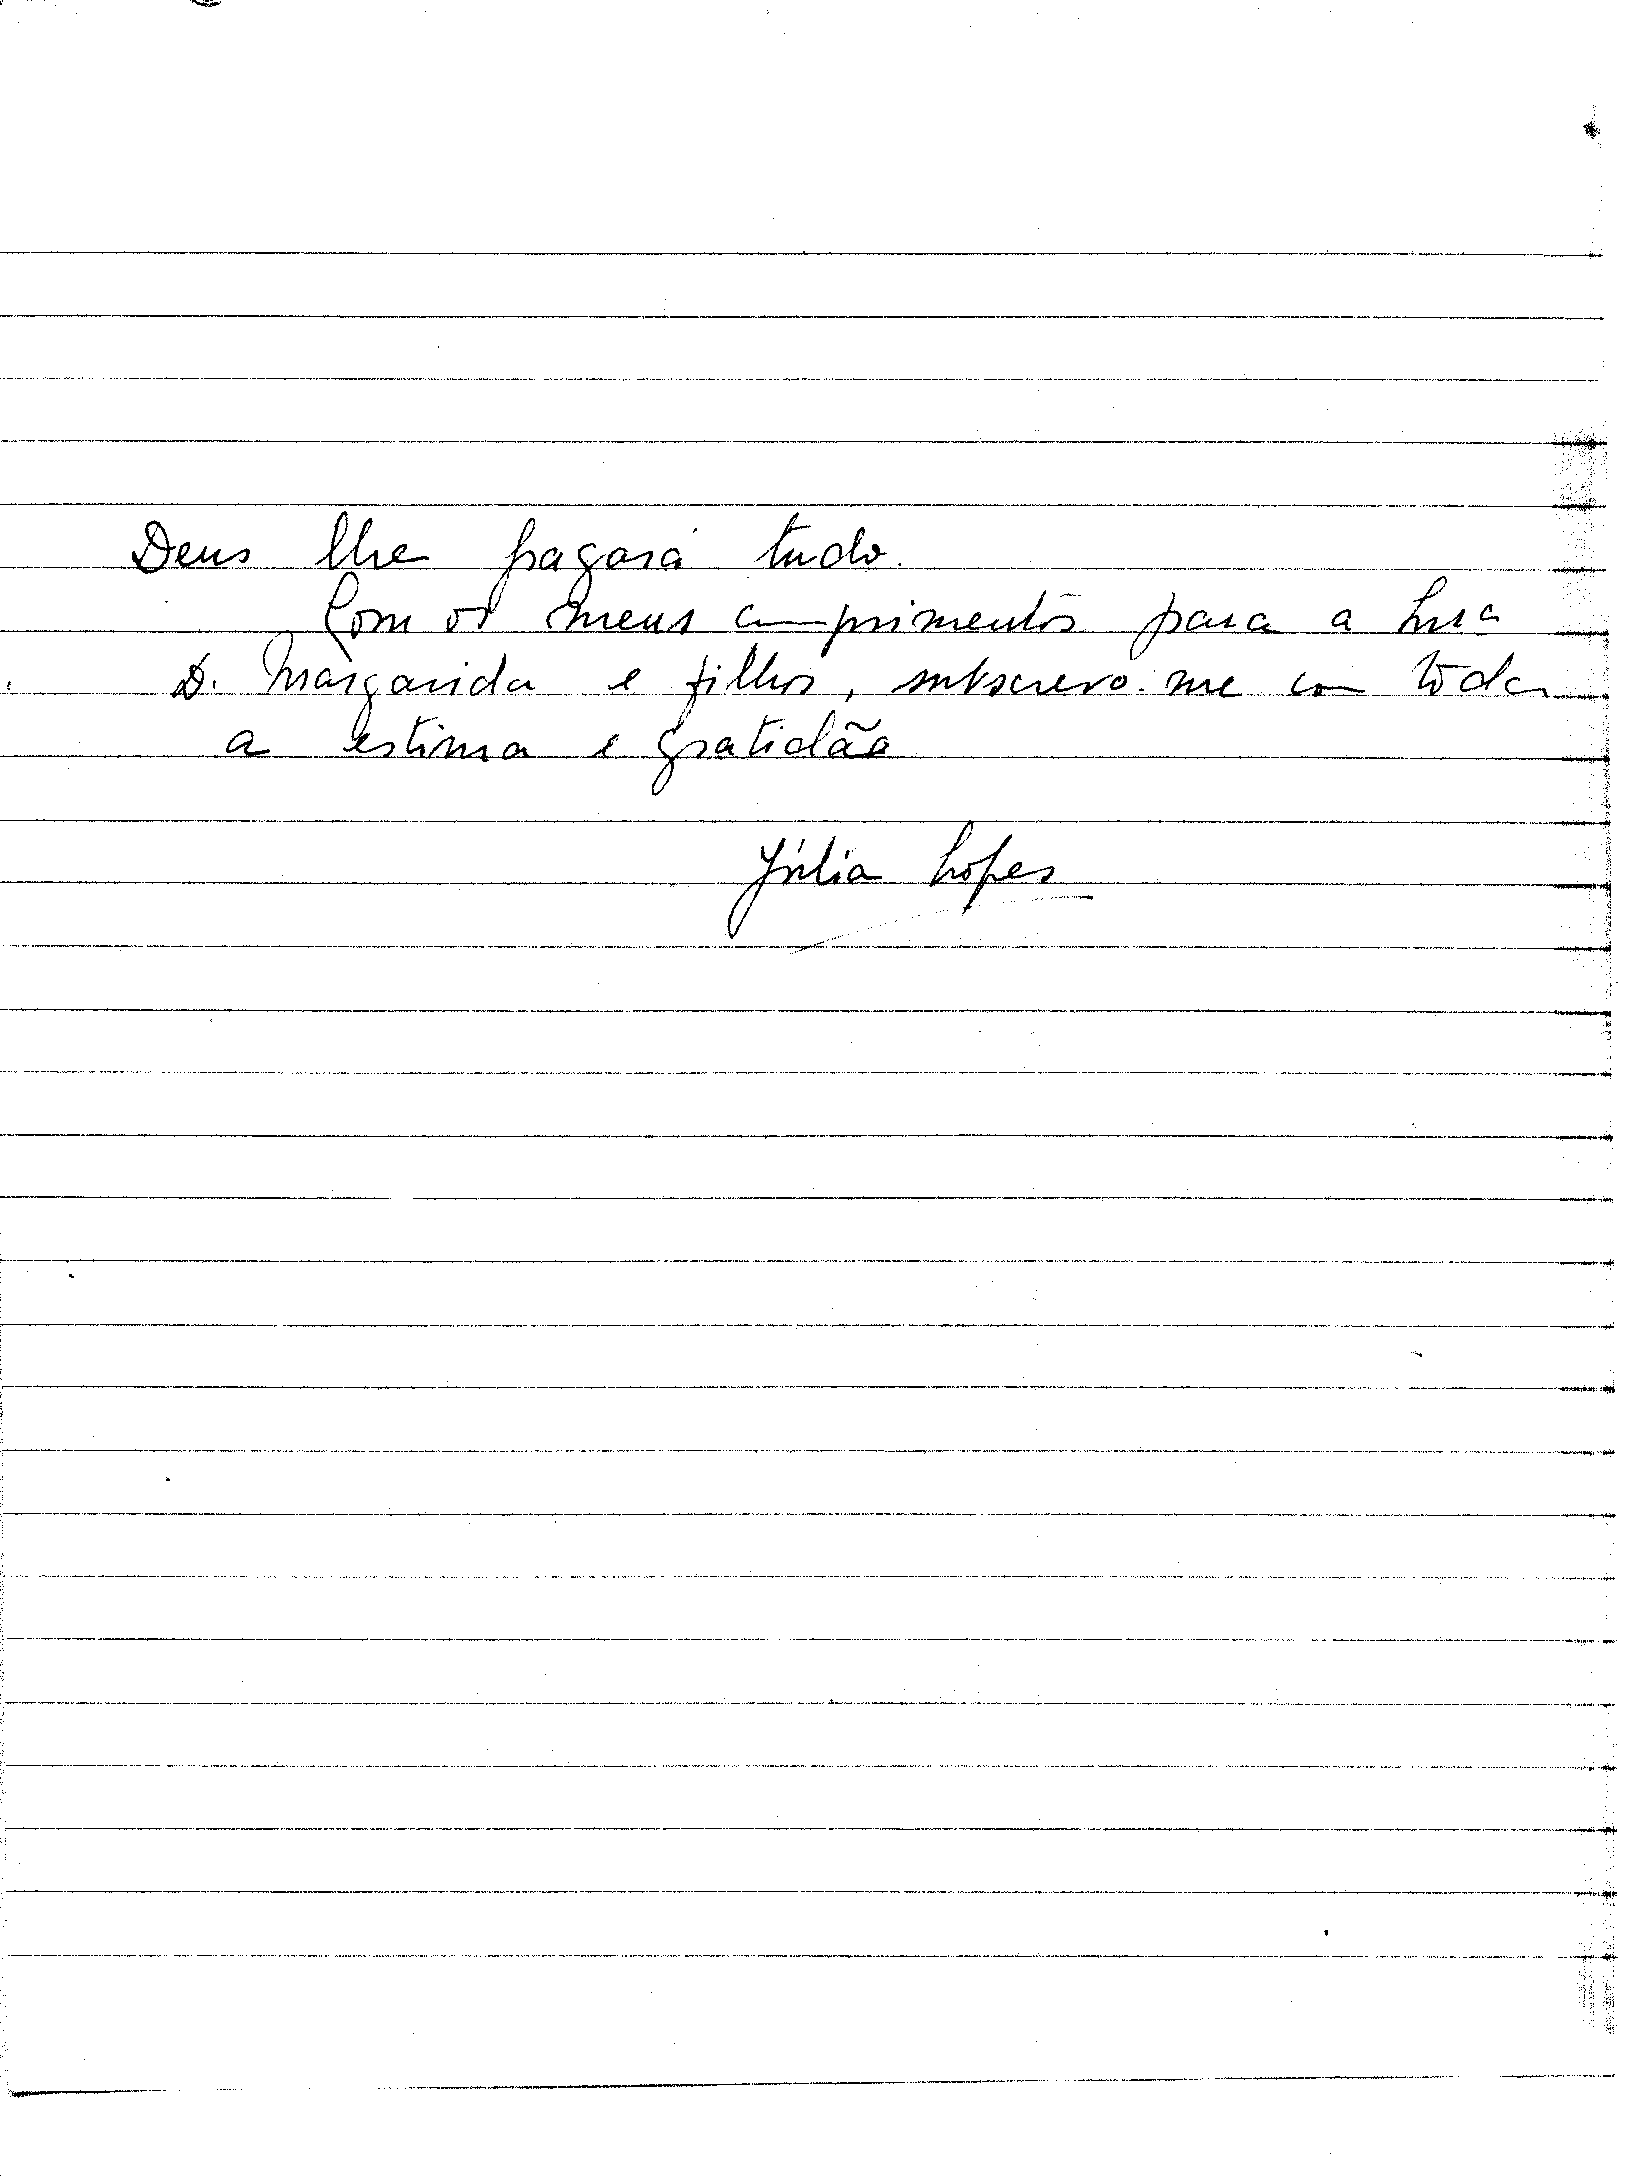 Deus lhe pagará tudo.
Com os meus cumprimentos para a Sra
D. Margarida e filhos, subscrevo-me com toda
a estima e gratidão
Júlia Lopes